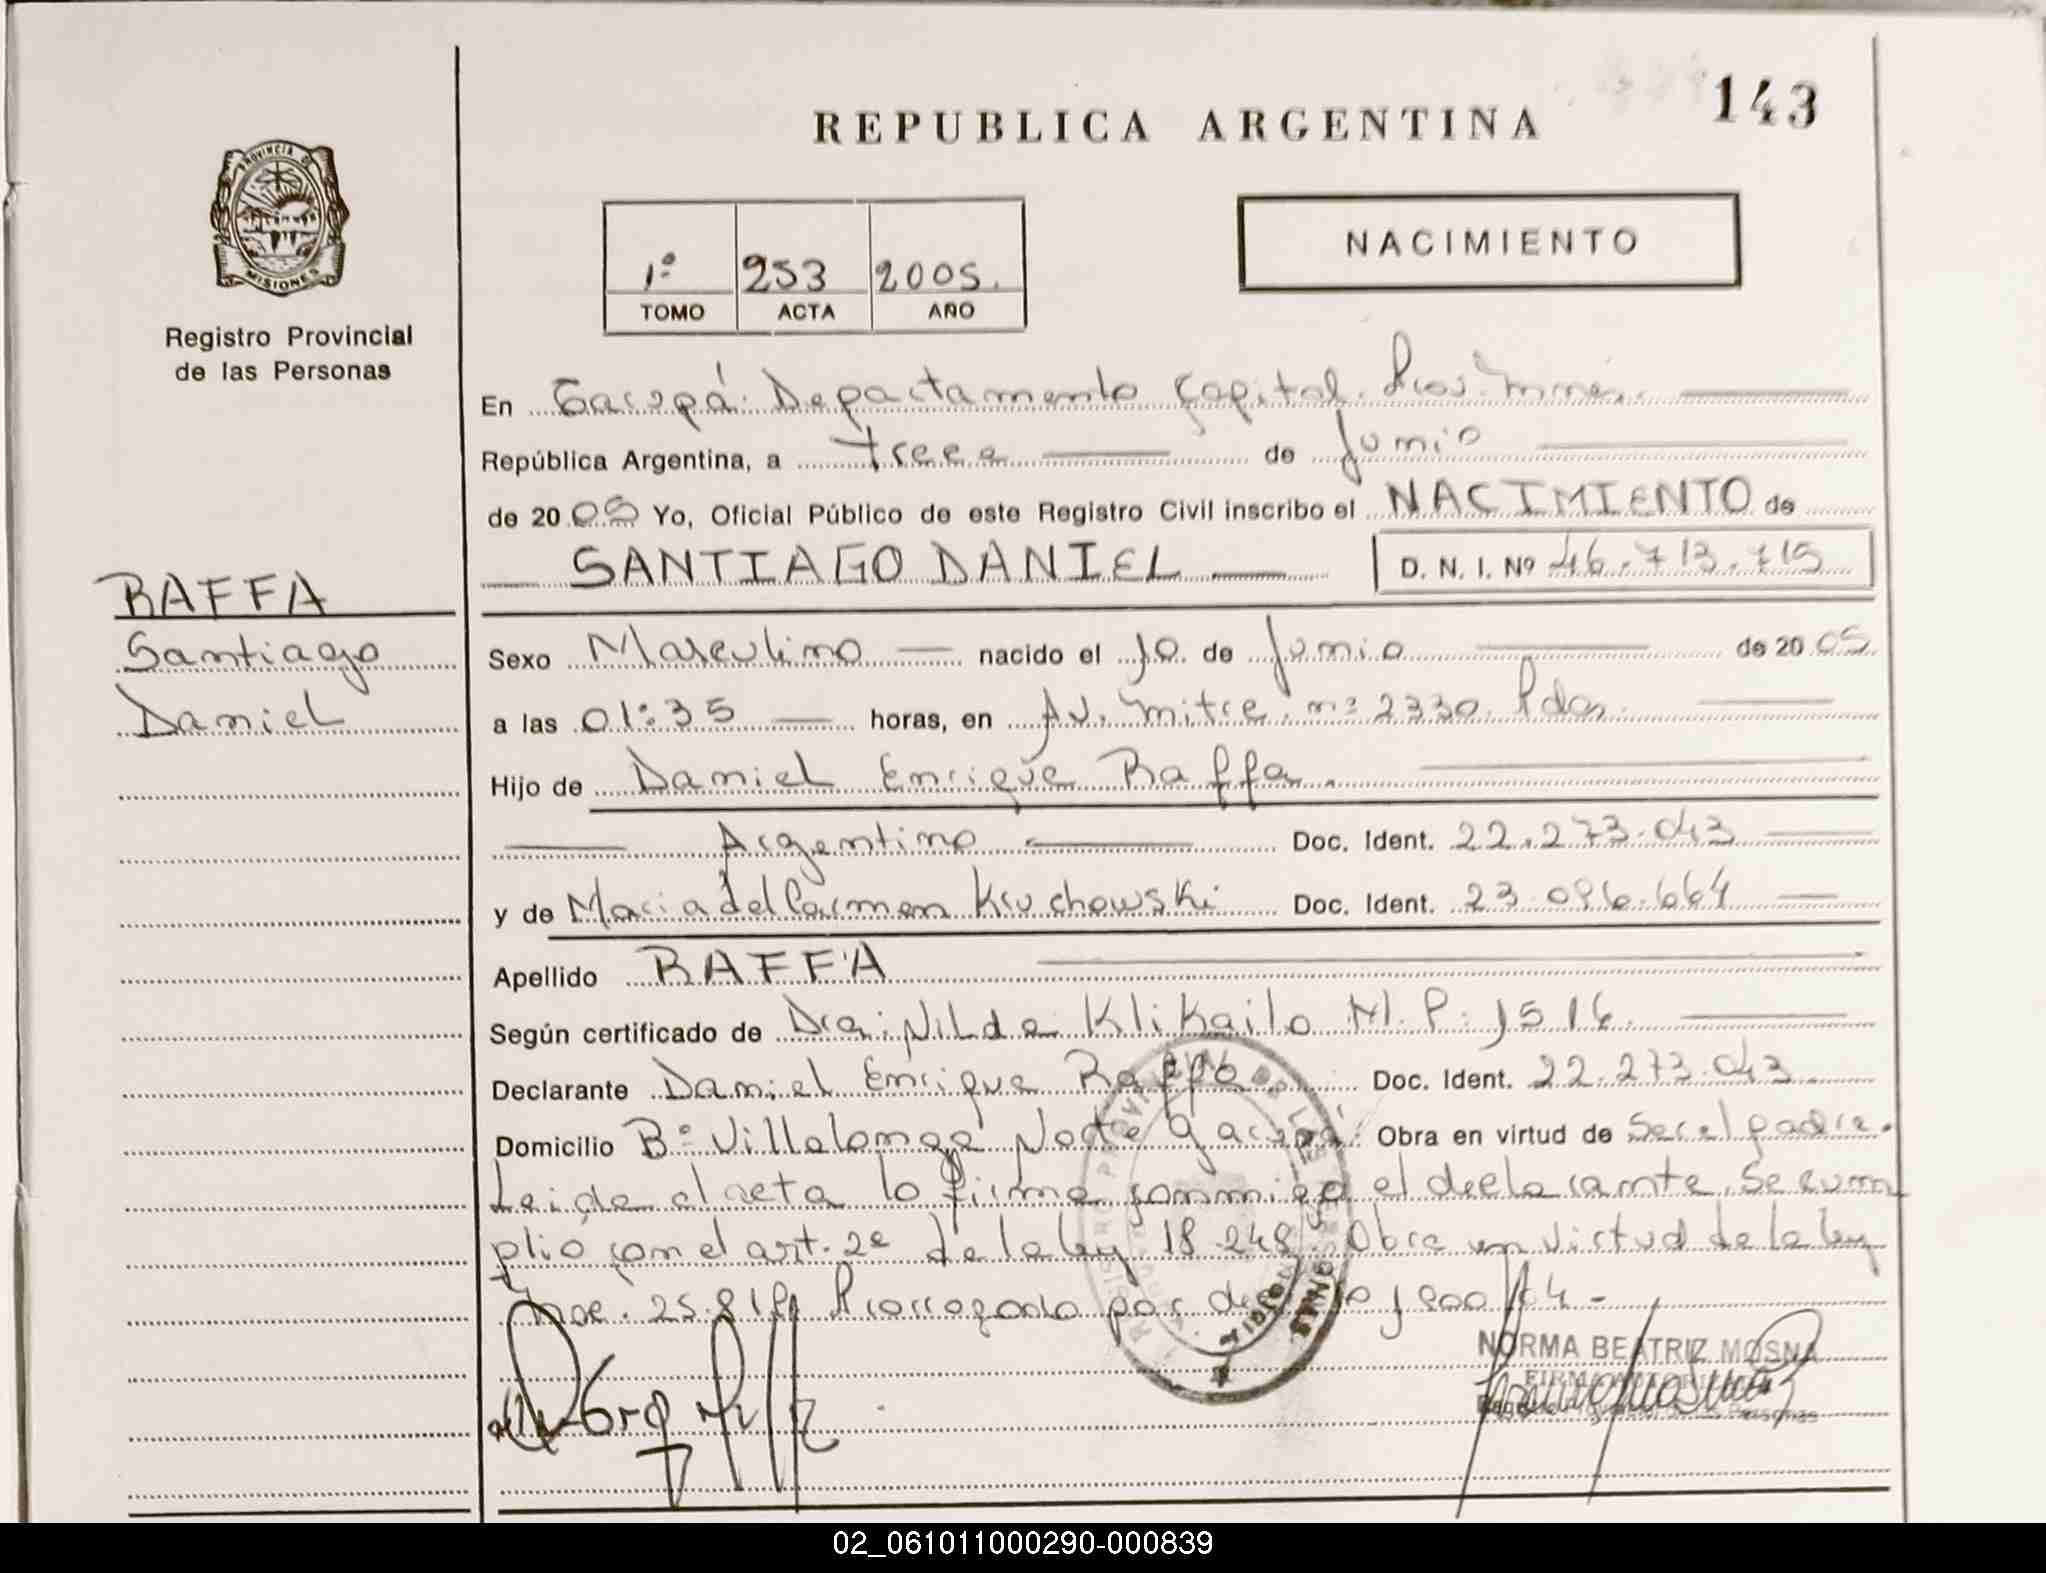 143
REPUBLICA ARGENTINA
PROVINCIA DE
MISIONES
Registro Provincial
de las Personas
1º 253 2005.
TOMO ACTA AÑO
NACIMIENTO
En Garupá. Departamento Capital. Prov. Mnes.
República Argentina, a trece de Junio
de 2005 Yo, Oficial Público de este Registro Civil inscribo el NACIMIENTO de
SANTIAGO DANIEL D. N. I. Nº 46.713.715
RAFFA
Santiago
Daniel
Sexo Masculino nacido el 10 de Junio de 2005
a las 01:35 horas, en Av. Mitre nº 2330 Pdas.
Hijo de Daniel Enrique Raffa.
Argentino Doc. Ident. 22.273.043
y de Maria del Carmen Kruchowski Doc. Ident. 23.096.664
Apellido RAFFA
Según certificado de Dra. Nilda Klikailo M.P. 1516
Declarante Daniel Enrique Raffa Doc. Ident. 22.273.043
Domicilio Bº Villalonga Norte Garupá. Obra en virtud de Ser el padre.
Leida el acta la firma conmigo el declarante. Se cum
plió con el art. 2º de la ley 18.248. Obra en virtud de la ley
Nac. 25.819 Prorrogado por 1900/04 -
NORMA BEATRIZ MOSNA
02_061011000290-000839